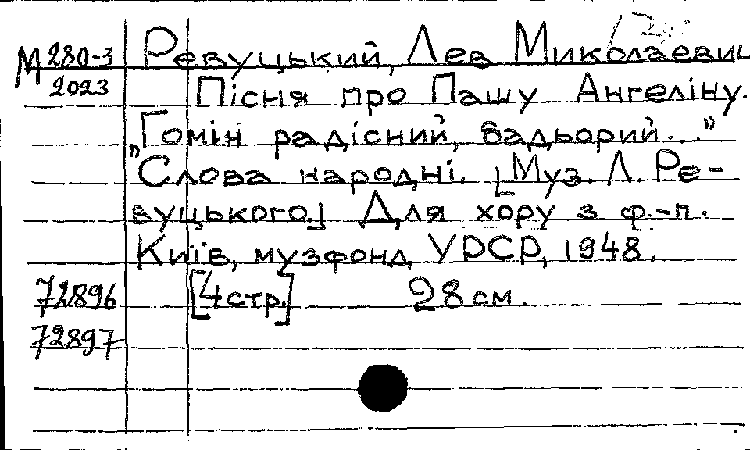 М 280-3 Ревуцький, Лев Миколаєвич
2023 Пісня про Пашу Ангеліну.
„Гомін радісний, бадьорий..."
Слова народні. [Муз. Л. Ре-
вуцького] Для хору з ф.-п.
Київ, музфонд УРСР, 1948.
72896 [4 стр.] 28 см.
72897